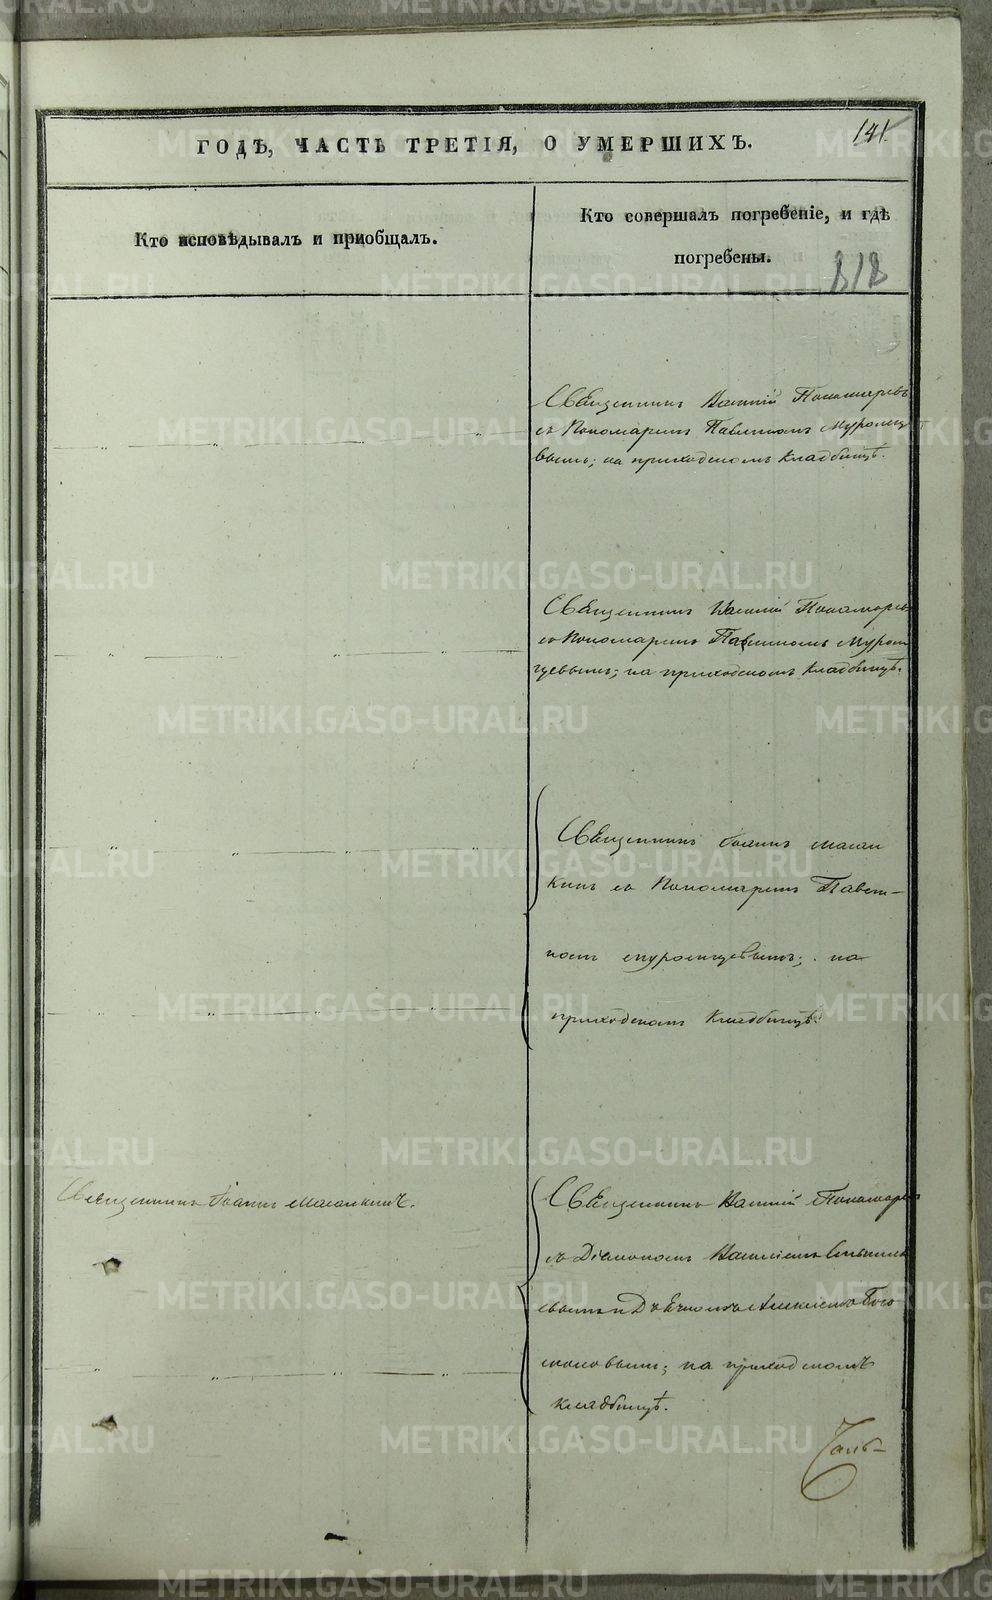 ГОДЪ, ЧАСТЬ ТРЕТІЯ, О УМЕРШИХЪ.
141
Кто исповѣдывалъ и пріобщалъ.
Кто совершалъ погребеніе, и гдѣ
погребены.
818
Священникъ Василій Пономаревъ
съ Пономаремъ Павлиномъ Муромц
вымъ; на приходскомъ кладбищѣ.
Священникъ Василій Пономаревъ
съ Пономаремъ Павлиномъ Муром
цевымъ; на приходскомъ кладбищѣ.
Священникъ Іоаннъ
съ Пономаремъ Павли-
номъ Муромцевымъ; на
приходскомъ кладбищѣ.
Священникъ Іоаннъ
Священникъ Василій Пономаревъ
съ Діакономъ Василіемъ
и Дьячкомъ Алексіемъ Бого
на приходскомъ
кладбищѣ.
METRIKI.GASO-URAL.RU